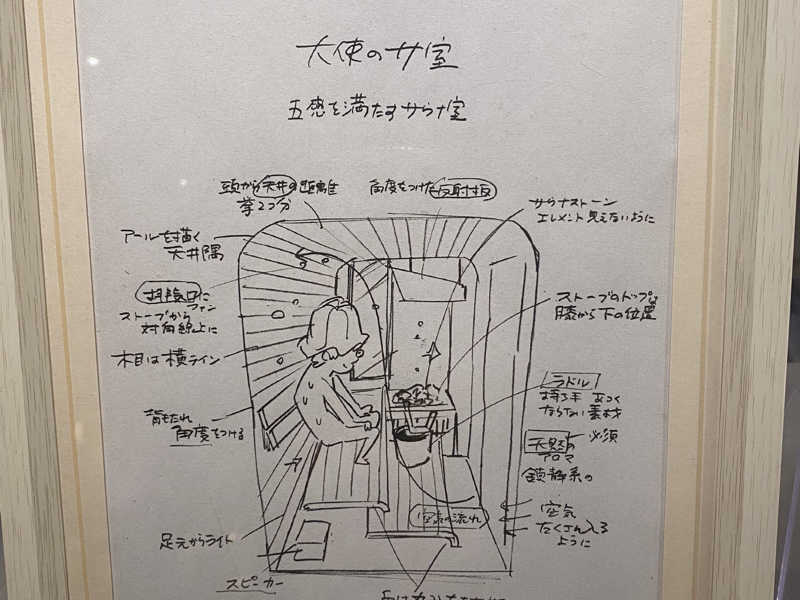 天使のサ室
五感を満たすサウナ室
頭から天井の距離
拳2つ分
角度をつけた反射板
サウナストーン
エレメント見えないように
アールを描く
天井隅
排気口に
ファン
ストーブから
対角線上に
ストーブのトップは
膝から下の位置
木目は横ライン
ラドル
持ち手 あつく
ならない素材
背もたれ
角度をつける
天然の 必須
アロマ
鎮静系の
空気の流れ
空気
たくさん入る
ように
足元からライト
スピーカー